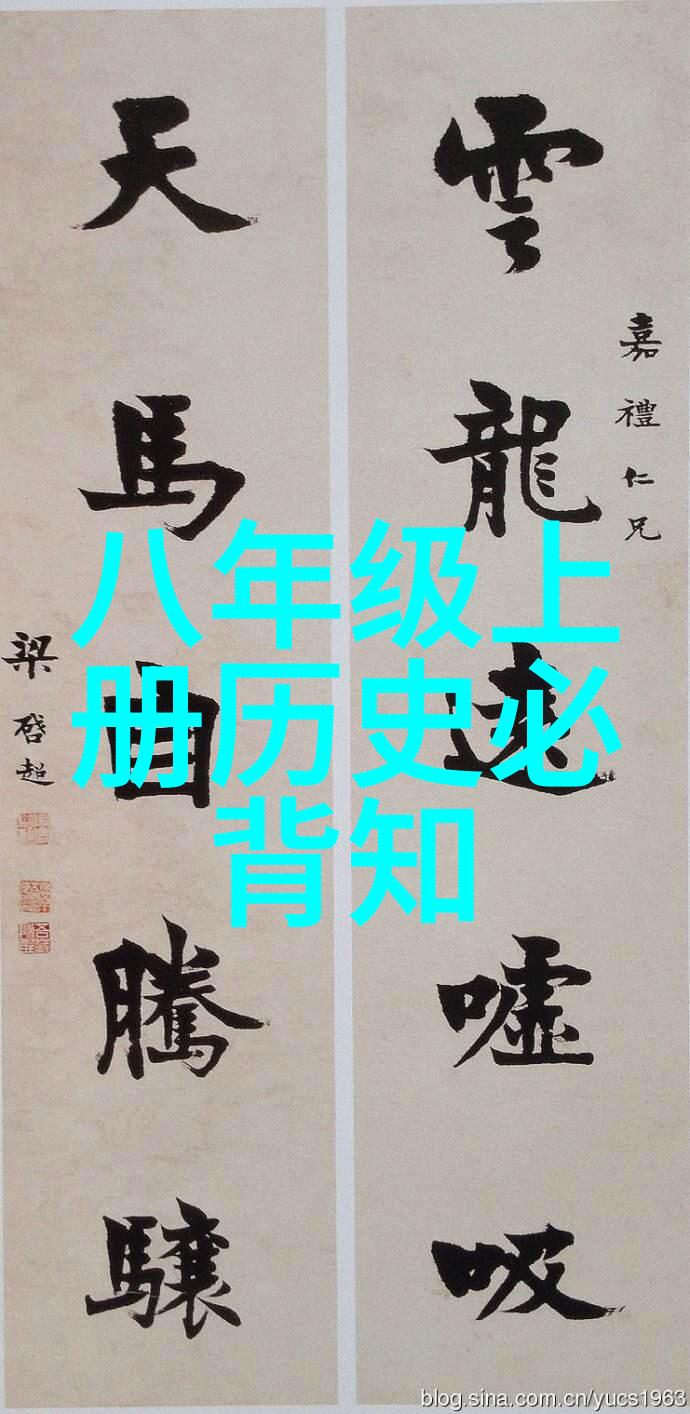 雲龍遠噓吸
嘉禮仁兄
天馬自騰驤
梁啓超
八年级上
册历史必
背知
blog.sina.com.cn/yucs1963